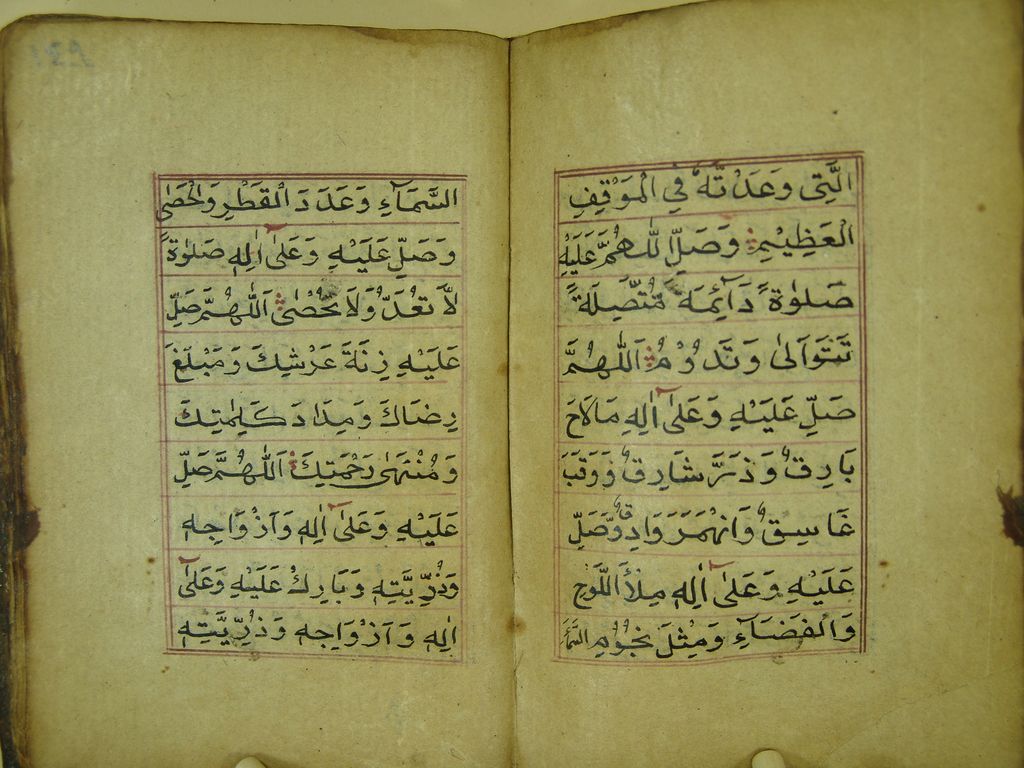 الَّتِى وَعَدْتَهُ فِى الْمَوْقِفِ
الْعَظِيْمِ وَصَلِّ اللّٰهُمَّ عَلَيْهِ
صَلٰوةً دَآئِمَةً مُتَّصِلَةً
تَتَوَالٰى وَتَدُوْمُ اَللّٰهُمَّ
صَلِّ عَلَيْهِ وَعَلٰٓى اٰلِهٖ مَالَاحَ
بَارِقٌ وَذَرَّ شَارِقٌ وَوَقَبَ
غَاسِقٌ وَانْهَمَرَ وَادِقٌ وَصَلِّ
عَلَيْهِ وَعَلٰٓى اٰلِهٖ مِلْأَ اللَّوْحِ
وَالْفَضَآءِ وَمِثْلَ نُجُوْمِ السَّمَآءِ
السَّمَآءِ وَعَدَدَ الْقَطْرِ وَالْحَصٰى
وَصَلِّ عَلَيْهِ وَعَلٰٓى اٰلِهٖ صَلٰوةً
لَّا تُعَدُّ وَلَا تُحْصٰى اَللّٰهُمَّ صَلِّ
عَلَيْهِ زِنَةَ عَرْشِكَ وَمَبْلَغَ
رِضَاكَ وَمِدَادَ كَلِمٰتِكَ
وَمُنْتَهٰى رَحْمَتِكَ اَللّٰهُمَّ صَلِّ
عَلَيْهِ وَعَلٰٓى اٰلِهٖ وَاَزْوَاجِهٖ
وَذُرِّيَّتِهٖ وَبَارِكْ عَلَيْهِ وَعَلٰٓى
اٰلِهٖ وَاَزْوَاجِهٖ وَذُرِّيَّتِهٖ